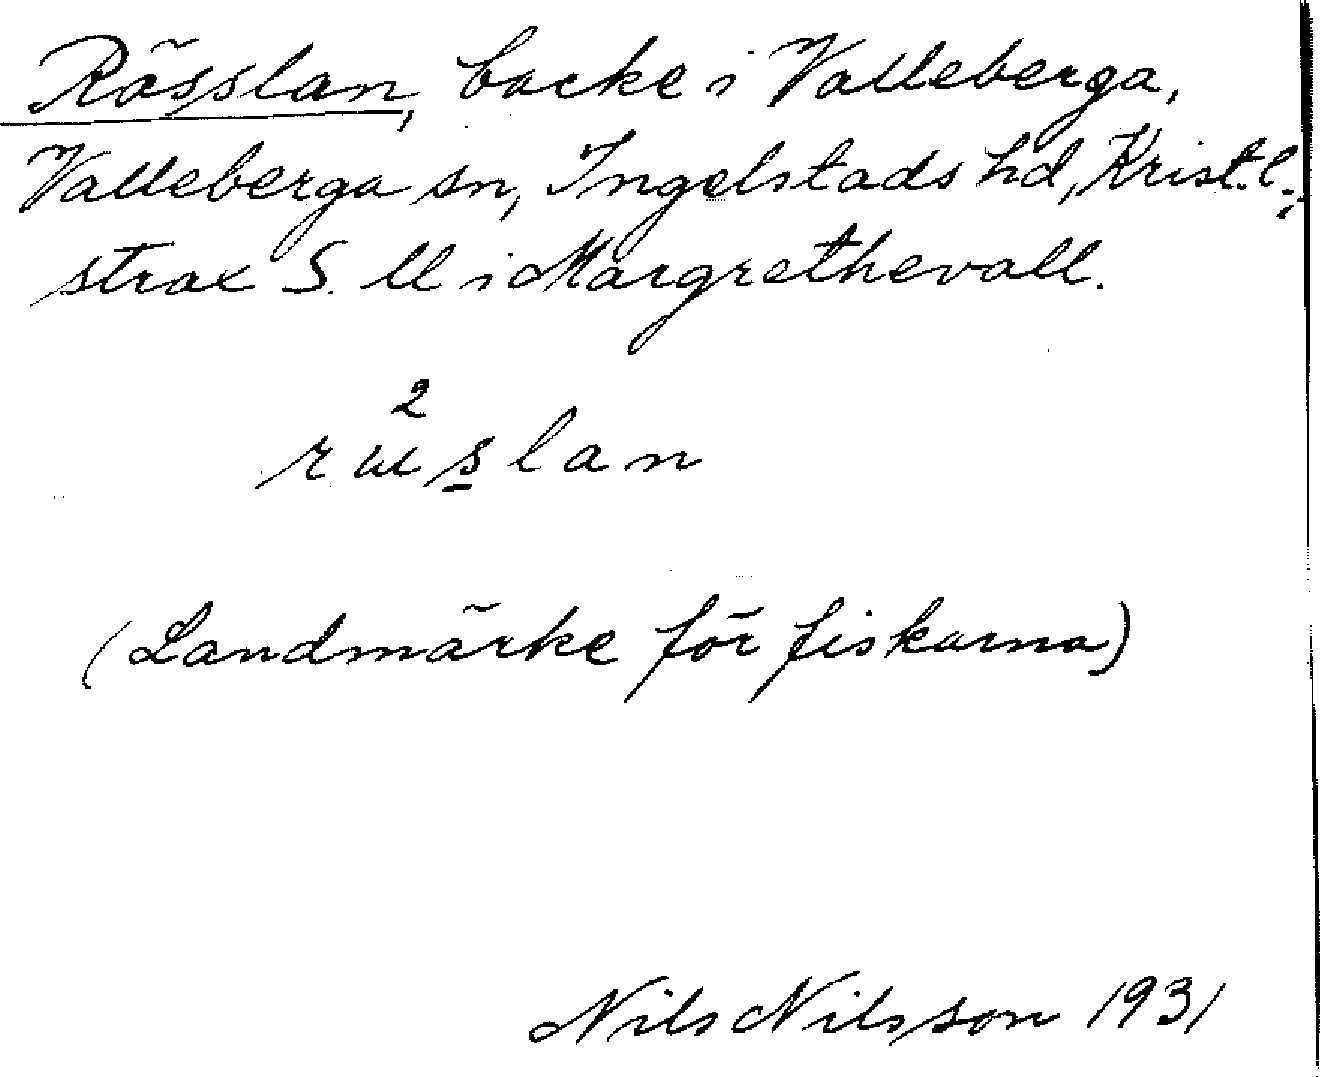 Rässlan, backe i Valleberga,
Valleberga sn, Ingelstads hd, Krist.l.;
strax S. ll i Margrethevall.
2
ræslan
(Landmärke för fiskarna)
Nils Nilsson 1931